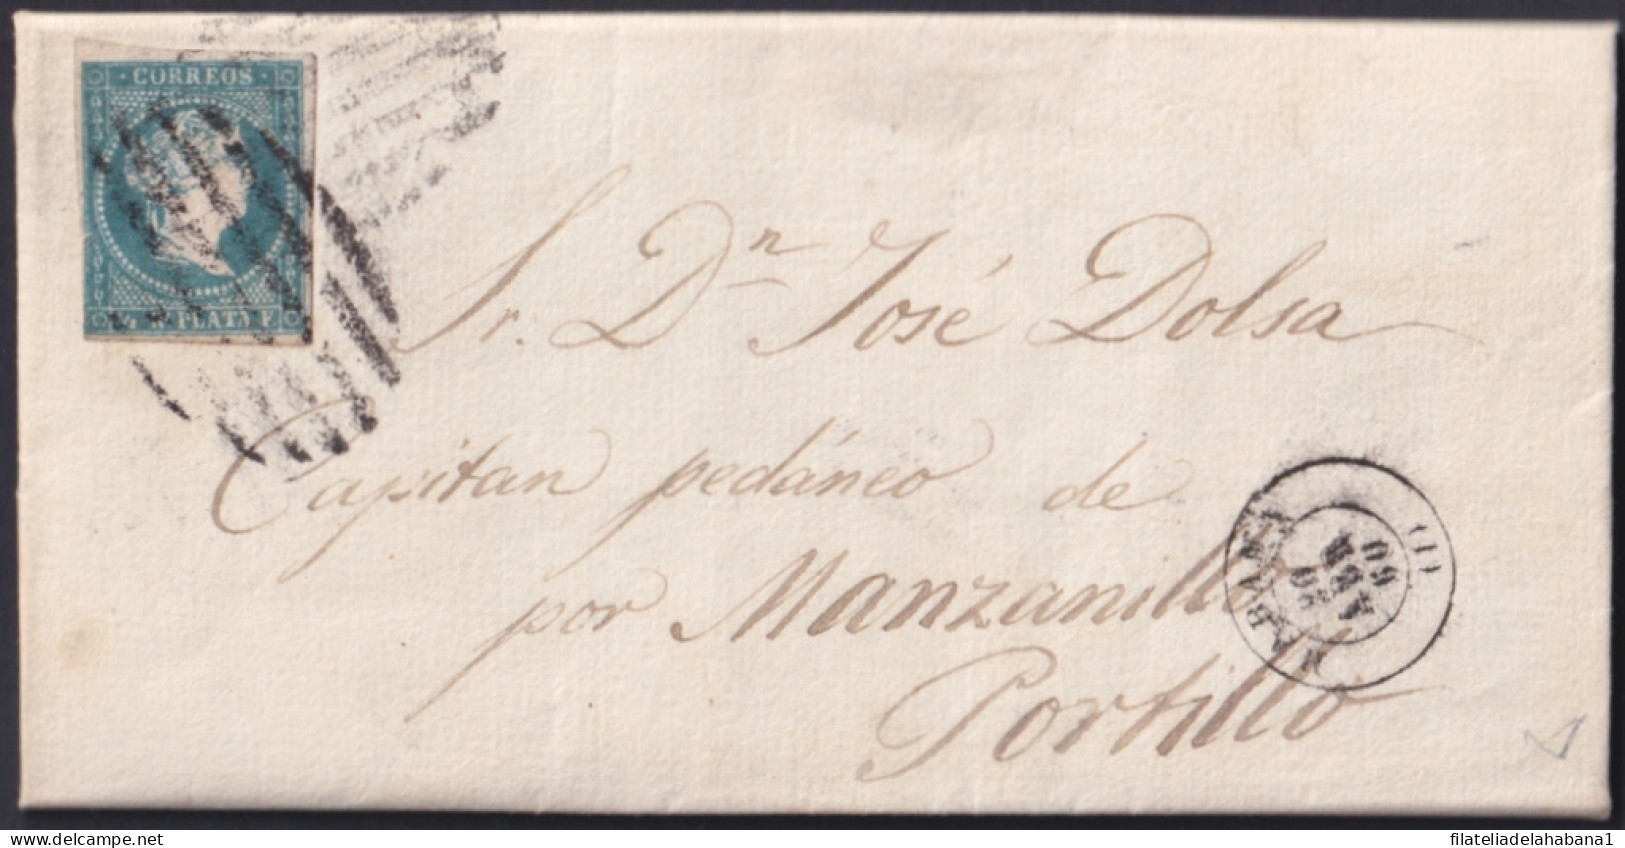 CORREOS
½ Rl PLATA F.
Sr. Dn José Dolsa
Capitan pedáneo de
por Manzanillo
Portillo
HABANA
ABR
60
filateliadelahabana1